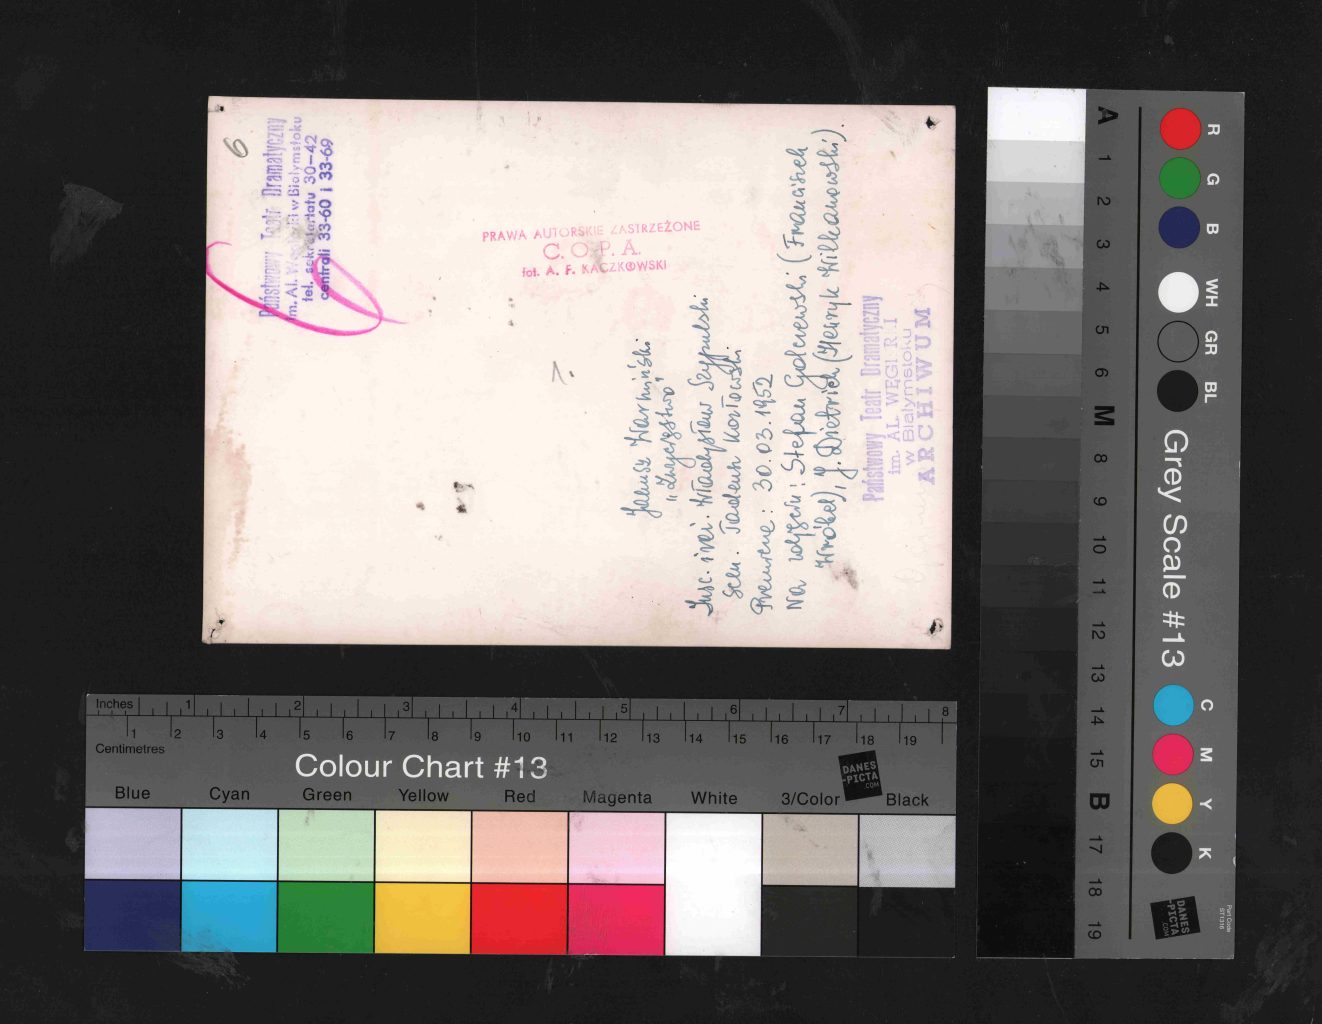 6
Państwowy Teatr Dramatyczny
im. Al. Węgierki w Białymstoku
tel. sekretariatu 30-42
centrali 33-60 i 33-69
PRAWA AUTORSKIE ZASTRZEŻONE
C. O. P. A.
fot. A. F. KACZKOWSKI
1.
Janusz Warmiński
"Zwycięstwo"
Insc. i reż. Władysław Szypulski
Scen. Tadeusz Kozłowski
Premiera: 30.03.1952
Na zdjęciu: Stefan Golczewski (Franciszek
Wróbel), J. Dietrich (Henryk Wilkanowski).
Państwowy Teatr Dramatyczny
im. AL. WĘGI R I
w Białymstoku
ARCHIWUM
Inches 1 2 3 4 5 6 7 8
1 2 3 4 5 6 7 8 9 10 11 12 13 14 15 16 17 18 19
Centimetres
Colour Chart #13
DANES
-PICTA
.COM
Blue Cyan Green Yellow Red Magenta White 3/Color Black
A 1 2 3 4 5 6 M 8 9 10 11 12 13 14 15 B 17 18 19
R G B WH GR BL
Grey Scale #13
C M Y K
DANES
-PICTA
.COM
Part Code
ST1316